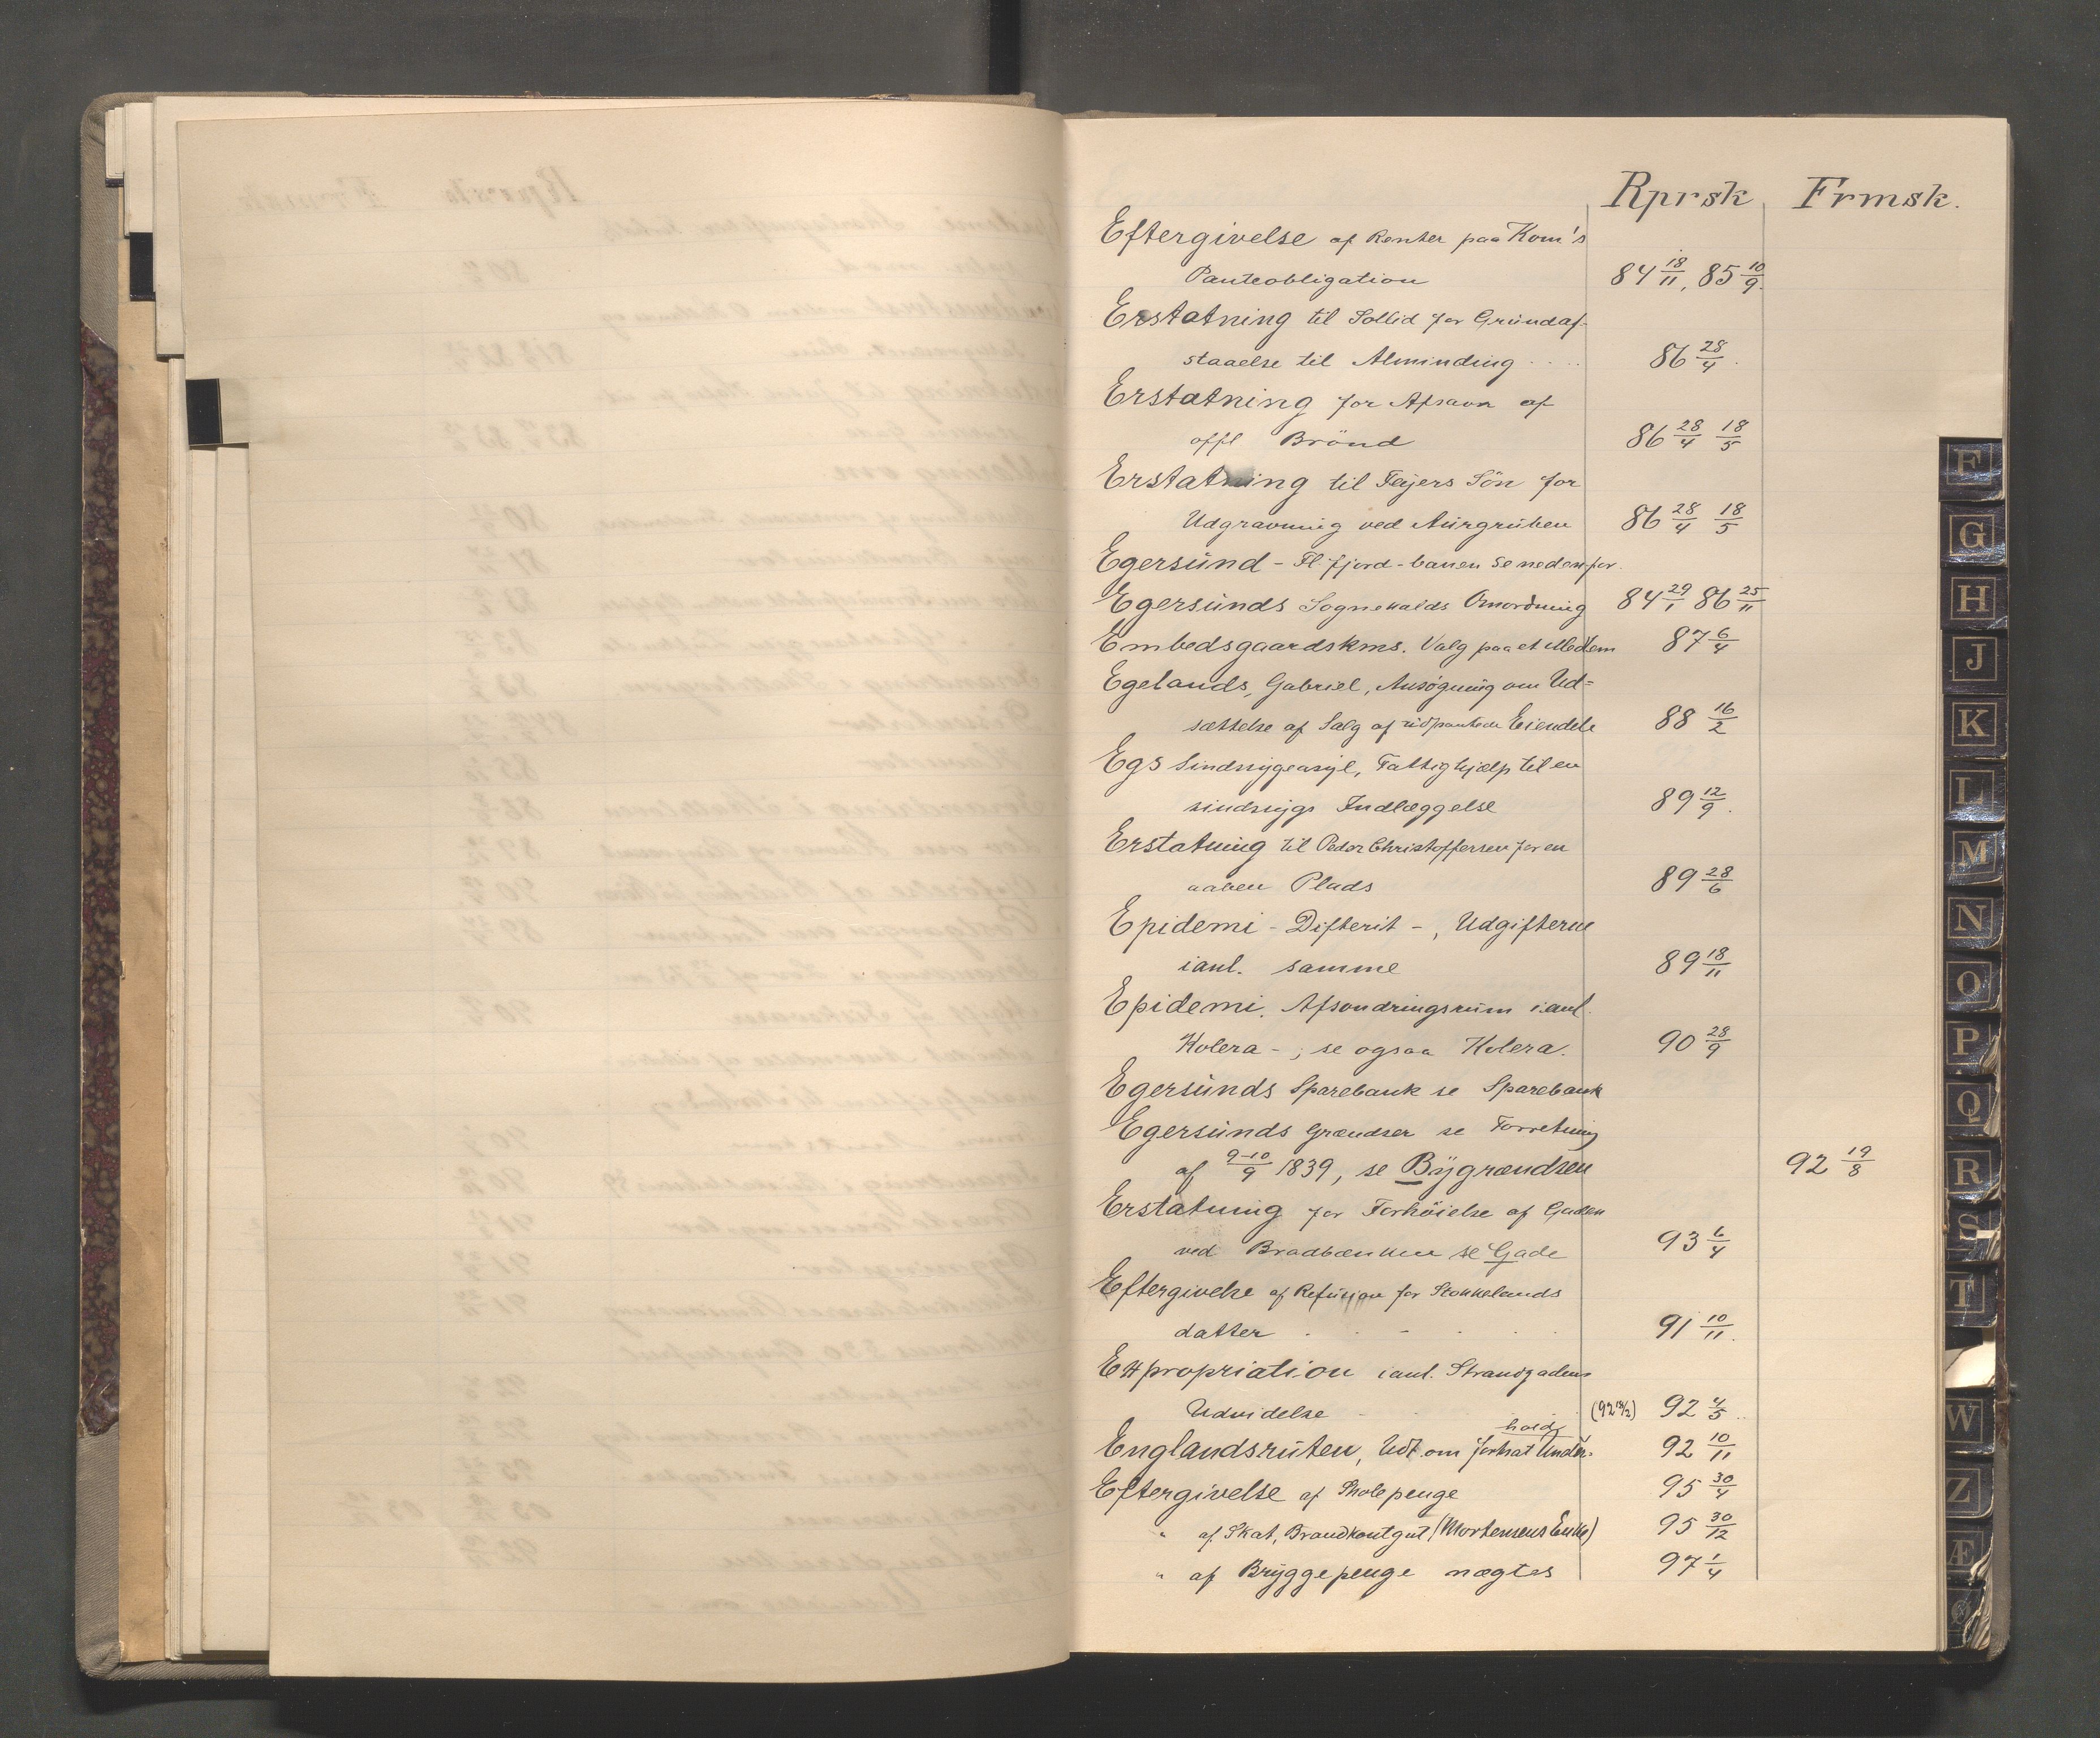 Rprsk Frmsk.
Eftergivelse af Renter paa Kom's
Panteobligation 84 18/11, 85 10/9.
Erstatning til Sollid for Grundaf-
staaelse til Alminding 86 28/4.
Erstatning for Afsavn af
offl Brönd 86 28/4 18/5
Erstatning til Fejers Sön for
Udgravning ved 86 28/4 18/5
Egersund - Fl.fjord-banen se nedenfor.
Egersunds Sognekalds Omordning 84 29/1 86 25/11
Embedsgaardskms. Valg paa et Medlem 87 6/4
Egelands, Gabriel, Ansögning om Ud=
sættelse af Salg af udpantede Eiendele 88 16/2
Egs Sindssygeasyl, Fattighjælp til en
sindssygs Indlæggelse 89 12/9.
Erstatning til Peder Christoffersen for en
aaben Plads 89 28/6
Epidemi - Difterit -, Udgifterne
ianl. samme 89 18/11
Epidemi. Afsondringsrum ianl.
Kolera -; se ogsaa Kolera. 90 28/9
Egersunds Sparebank se Sparebank
Egersunds Grændser se Forretning
af 9-10/9 1839, se Bygrændsen 92 19/8
Erstatning for Forhöielse af Gaden
ved Bradbænken se Gade 93 6/4
Eftergivelse af Refusion for Stokkelands
datter 91 10/11.
Expropriation ianl. Strandgadens
Udvidelse (92 18/2) 92 4/5
hold
Englandsruten, Udt om fortsat Under- 92 10/11
Eftergivelse af Skolepenge 95 30/4
" af Skat, Brandkontgut (Mortensens Enke) 95 30/12
" af Bryggepenge nægtes 97 1/4
F
G
H
J
K
L
M
N
O
P
Q
R
S
T
W
Z
Æ
Ø